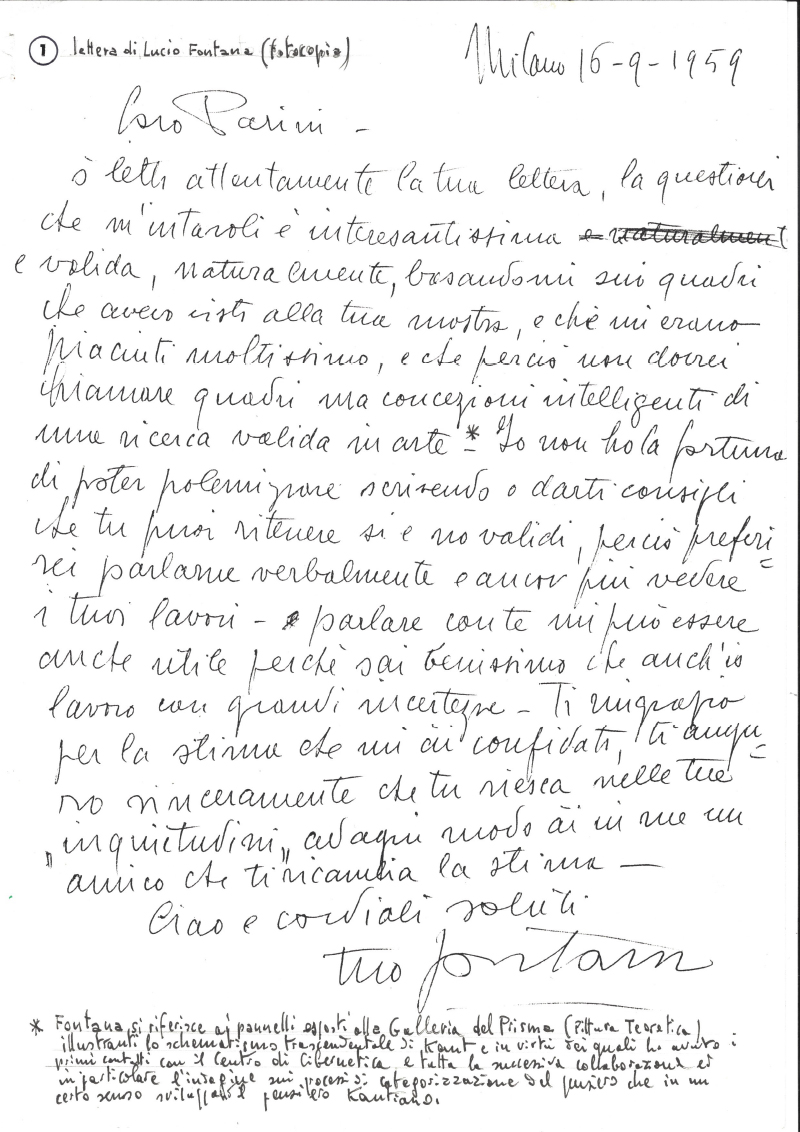 1 lettera di Lucio Fontana (fotocopia)
Milano 16-9-1959
Caro Parini -
ò letto attentamente la tua lettera, la questione
che m'intavoli è interesantissima e naturalment
e valida, naturalmente, basandomi sui quadri
che avevo visti alla tua mostra, e che mi erano
piaciuti moltissimo, e che perciò non dovrei
chiamare quadri ma concezioni intelligenti di
una ricerca valida in arte * Io non ho la fortuna
di poter polemizzare scrivendo o darti consigli
che tu puoi ritenere si e no validi, perciò preferi=
rei parlarne verbalmente e ancor più vedere
i tuoi lavori - e parlare con te mi può essere
anche utile perchè sai benissimo che anch'io
lavoro con grandi incertezze - Ti ringrazio
per la stima che mi ài confidati, ti augu=
ro sinceramente che tu riesca nelle tue
"inquietudini" ad ogni modo ài in me un
amico che ti ricambia la stima —
Ciao e cordiali saluti
tuo Fontana
* Fontana si riferisce ai pannelli esposti alla Galleria del Prisma (Pittura Teoretica)
illustranti lo schematismo trascendentale di Kant e in virtù dei quali ho avuto i
primi contatti con il Centro di Cibernetica, e tutta la successiva collaborazione ed
in particolare l'indagine sui processi di categorizzazione del pensiero che in un
certo senso sviluppano il pensiero Kantiano.